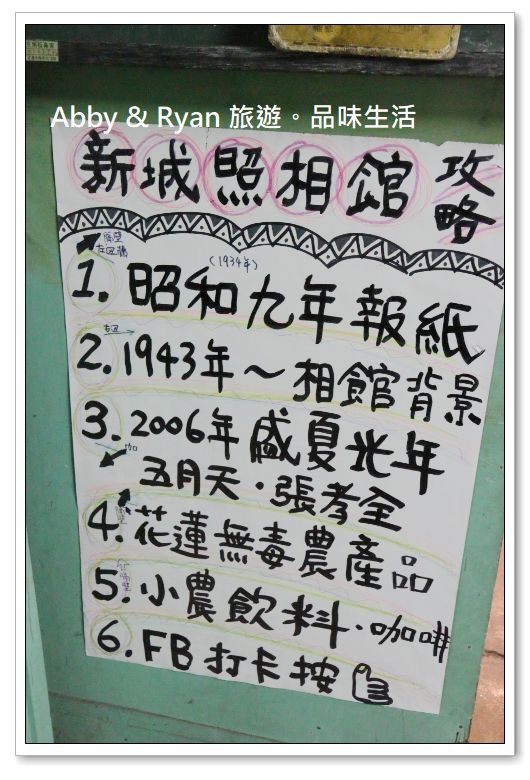 Abby & Ryan 旅遊。品味生活
新城照相館 攻略
(1934年)
1. 昭和九年報紙
2. 1943年~相館背景
3. 2006年盛夏光年
五月天·張孝全
4. 花蓮無毒農產品
5. 小農飲料·咖啡
6. FB打卡按